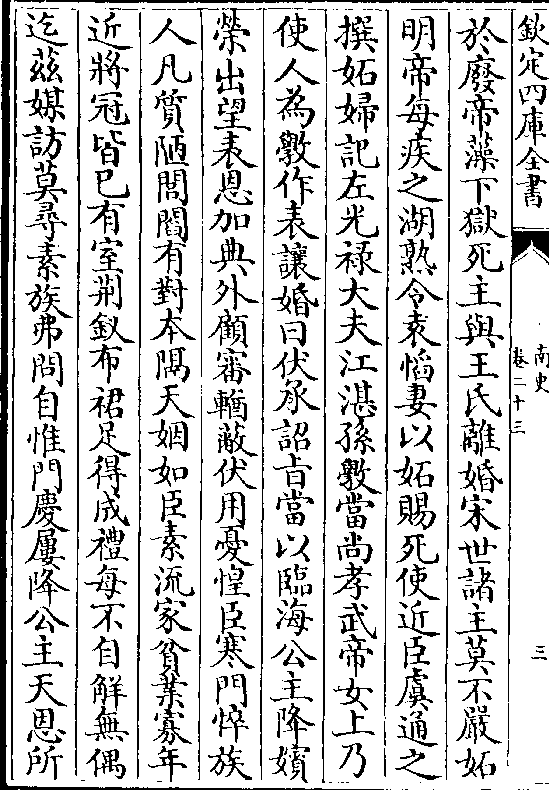 欽定四庫全書
南史
卷二十三
三
於廢帝藻下獄死主與王氏離婚宋世諸主莫不嚴妬
明帝每疾之湖熟令袁慆妻以妬賜死使近臣虞通之
撰妬婦記左光祿大夫江湛孫斆當尚孝武帝女上乃
使人為斆作表讓婚曰伏承詔旨當以臨海公主降嬪
榮出望表恩加典外顧審輶蔽伏用憂惶臣寒門悴族
人凡質陋閭閻有對本隔天姻如臣素流家貧業寡年
近將冠皆已有室荆釵布裙足得成禮每不自解無偶
迄茲媒訪莫尋素族弗問自惟門慶屢降公主天恩所